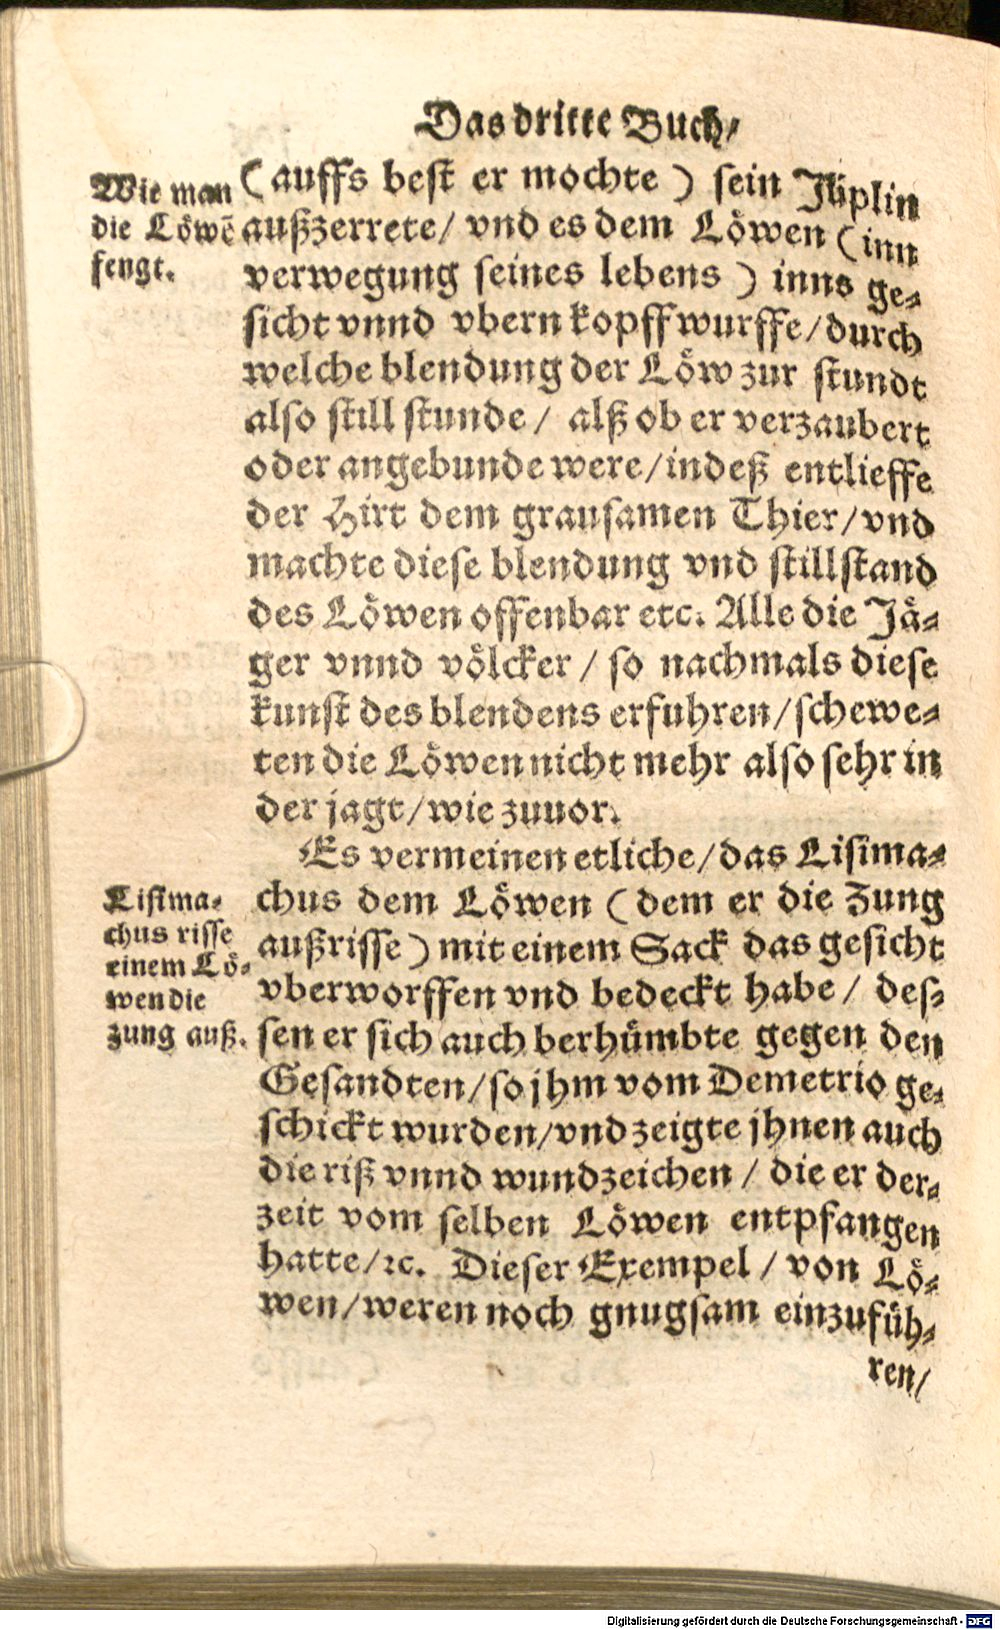 Das dritte Buch/
Wie man
die Löwẽ
fengt.
(auffs best er mochte) sein Jüplin
außzerrete/ vnd es dem Löwen (inn
verwegung seines lebens) inns ge-
sicht vnnd vbern kopff wurffe/durch
welche blendung der Löw zur stundt
also still stunde/ alß ob er verzaubert
oder angebunde were/indeß entlieffe
der Hirt dem grausamen Thier/vnd
machte diese blendung vnd stillstand
des Löwen offenbar etc. Alle die Jä-
ger vnnd völcker/so nachmals diese
kunst des blendens erfuhren/schewe-
ten die Löwen nicht mehr also sehr in
der jagt/wie zuuor.
Es vermeinen etliche/das Lisima-
Lisima-
chus risse
einem Lö-
wen die
zung auß.
chus dem Löwen (dem er die Zung
außrisse) mit einem Sack das gesicht
vberworffen vnd bedeckt habe/ des-
sen er sich auch berhümbte gegen den
Gesandten/so jhm vom Demetrio ge-
schickt wurden/vnd zeigte jhnen auch
die riß vnnd wundzeichen/ die er der-
zeit vom selben Löwen entpfangen
hatte/ꝛc. Dieser Exempel/von Lö-
wen/weren noch gnugsam einzufüh-
ren/
Digitalisierung gefördert durch die Deutsche Forschungsgemeinschaft - DFG